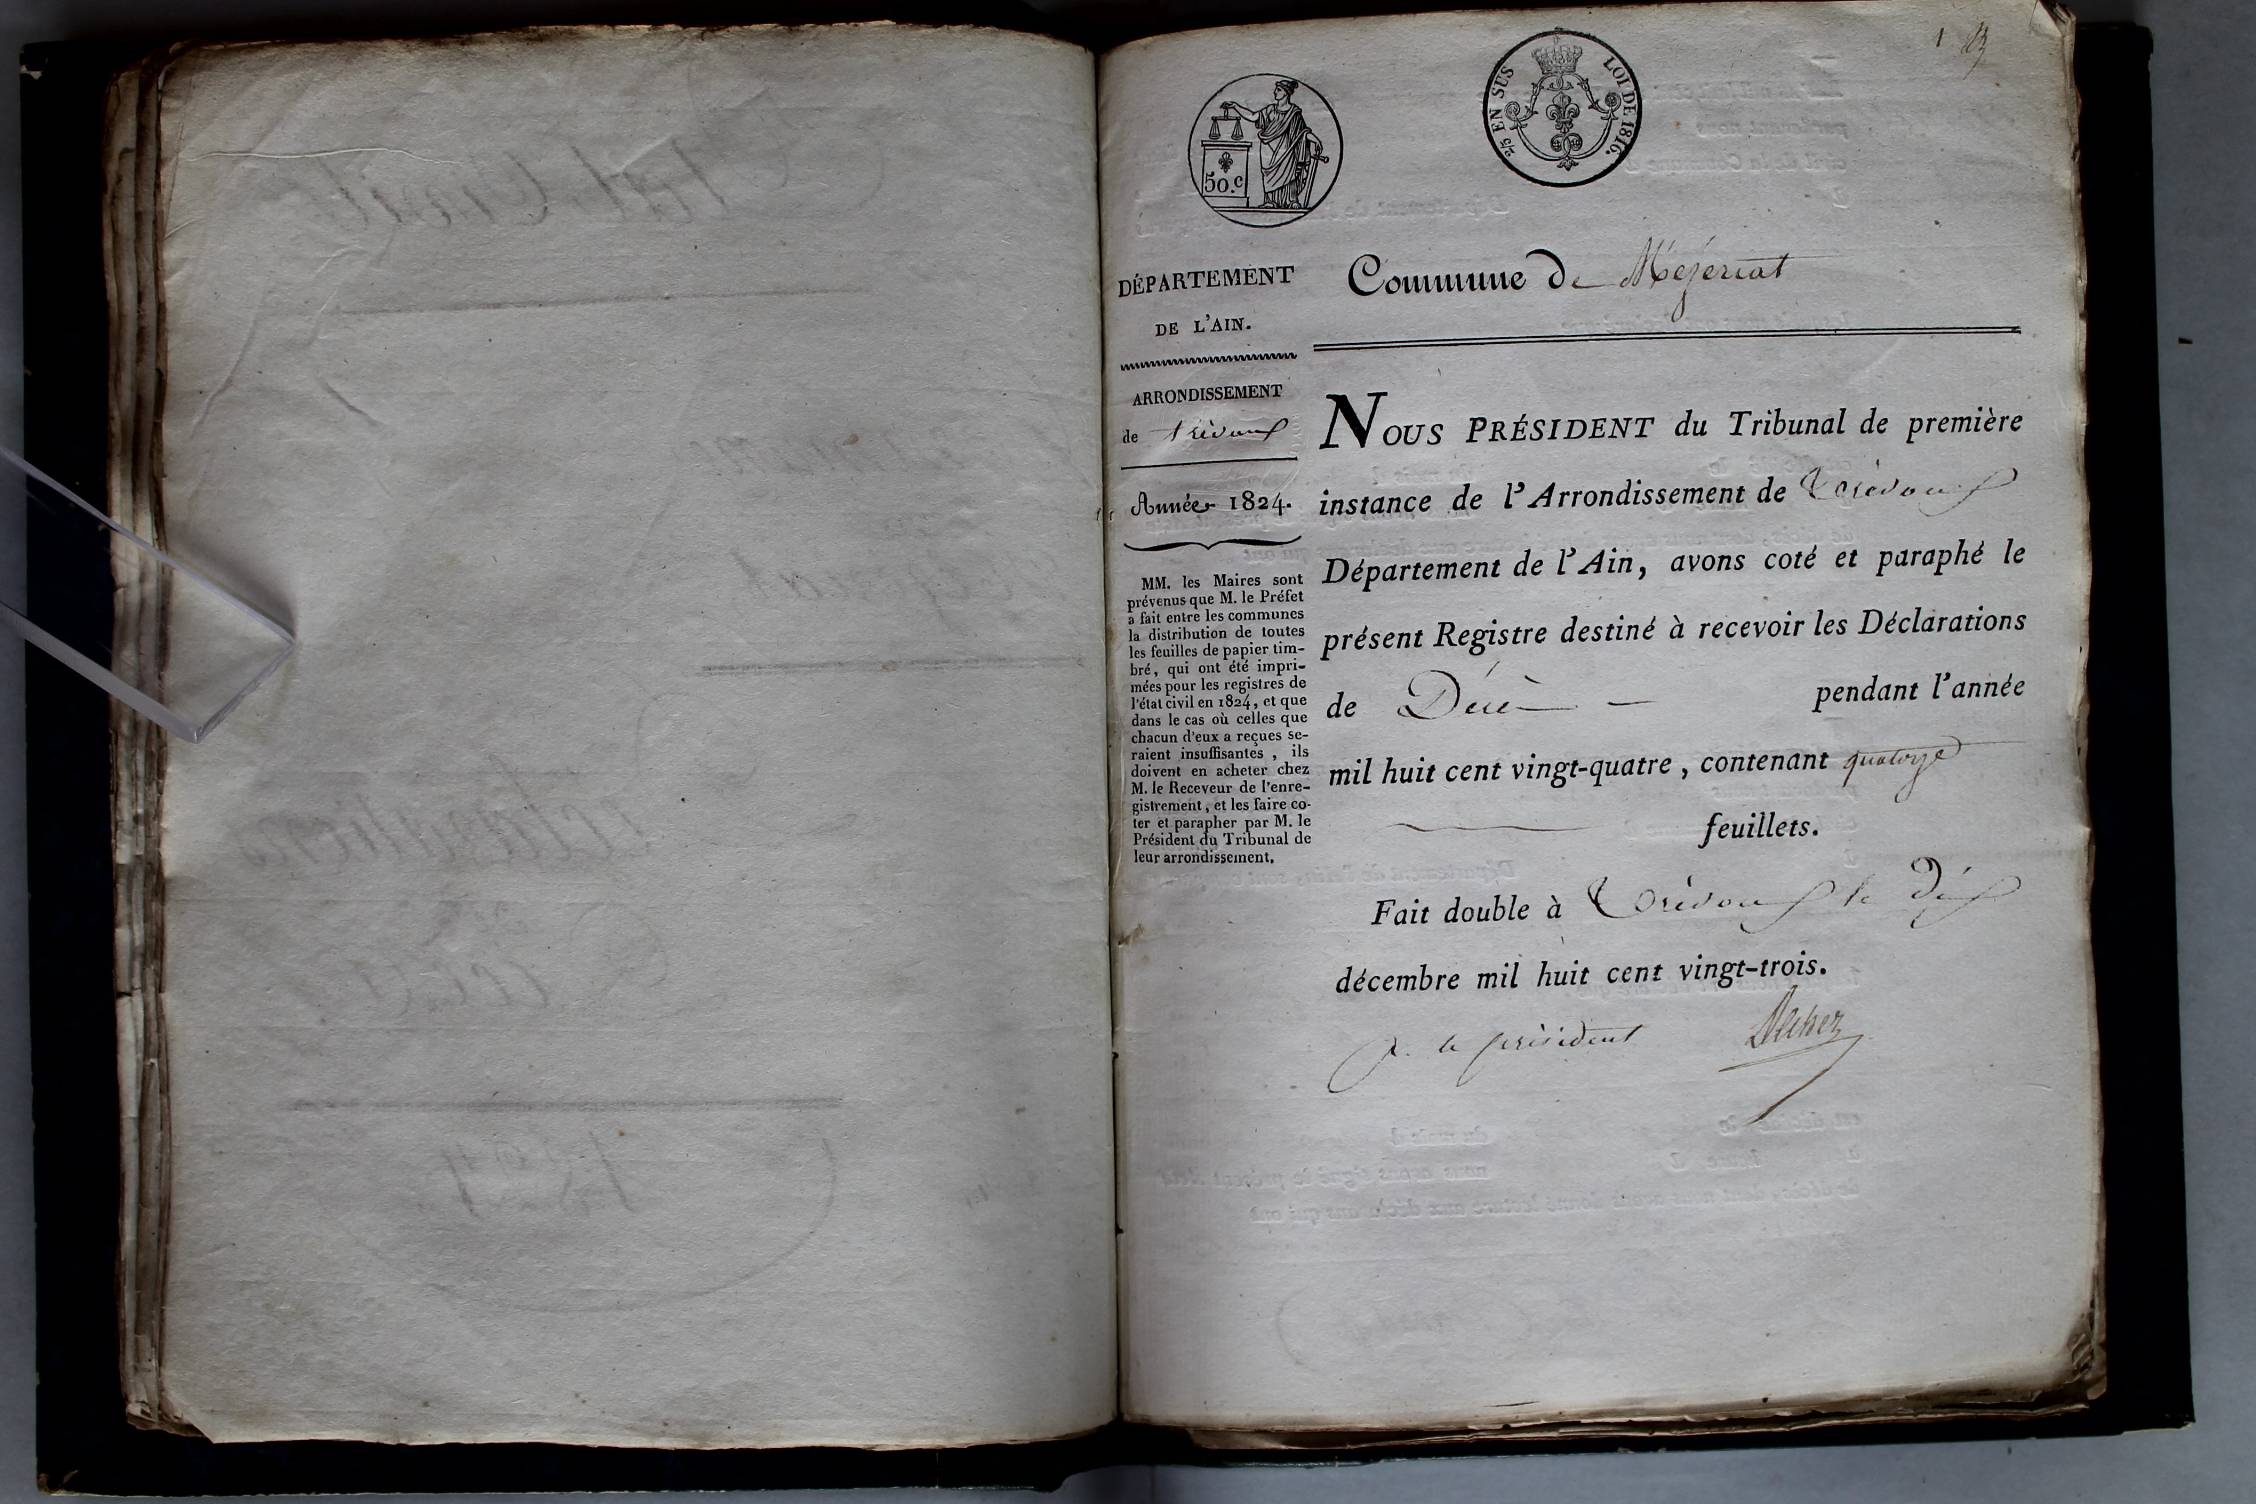 1
50.c
2/5 EN SUS
LOI DE 1816.
DÉPARTEMENT
DE L'AIN.
ARRONDISSEMENT
de trévoux
Année 1824.
MM. les Maires sont
prévenus que M. le Préfet
a fait entre les communes
la distribution de toutes
les feuilles de papier tim-
bré, qui ont été impri-
mées pour les registres de
l'état civil en 1824, et que
dans le cas où celles que
chacun d'eux a reçues se-
raient insuffisantes, ils
doivent en acheter chez
M. le Receveur de l'enre-
gistrement, et les faire co-
ter et parapher par M. le
Président du Tribunal de
leur arrondissement.
Commune de Mezeriat
NOUS PRÉSIDENT du Tribunal de première
instance de l'Arrondissement de Trévoux
Département de l'Ain, avons coté et paraphé le
présent Registre destiné à recevoir les Déclarations
de Décès pendant l'année
mil huit cent vingt-quatre, contenant quatorze
feuillets.
Fait double à Trévoux le dix
décembre mil huit cent vingt-trois.
p. le président